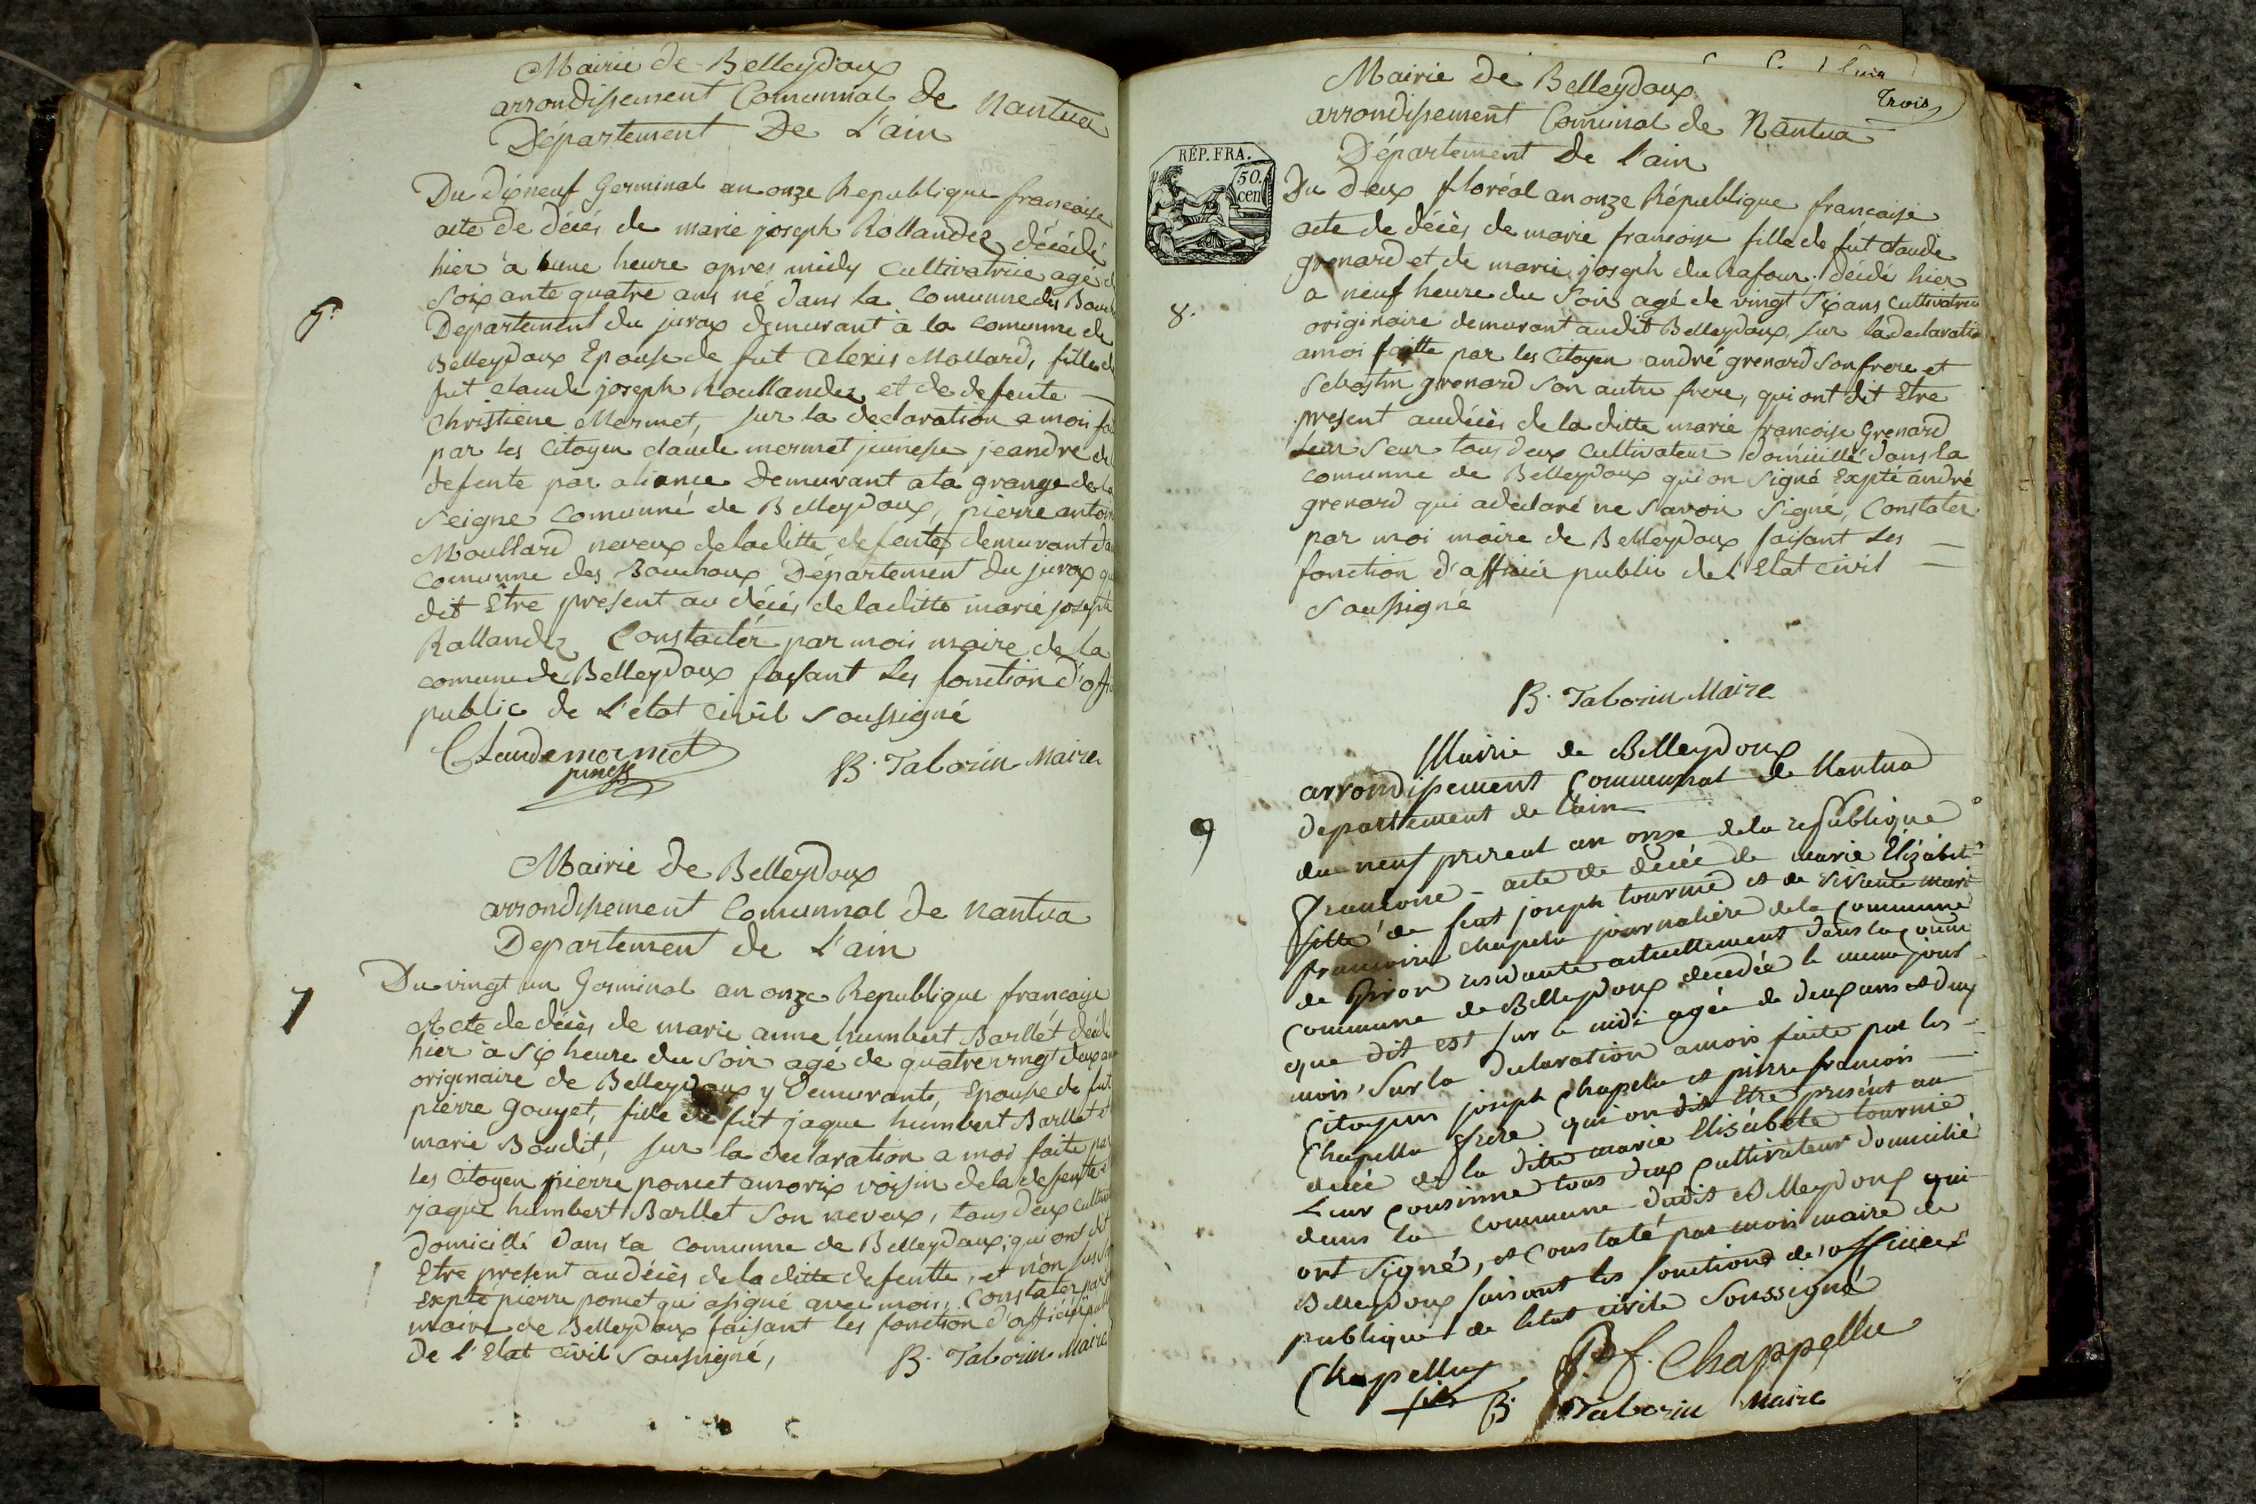 Mairie de Belleydoux
arrondissement Comunnal de Nantua
Département De L'ain
Du dixneuf Germinal an onze Republique francaise
acte de décés de marie joseph Rollandez décédé
hier a une heure apres midy Cultivatrice agé d
Soixante quatre ans né dans la Comunne des Bouch
Departement du jurax demurant à la Comunne de
Belleydoux Epouse de fut Alexis Mollard, fille d
fut claude joseph Roullandez et de defente
Christiene Mermet, sur la declaration a moi fa
par les Citoyen claude mermet junesse jeandre de
defente par aliance demurant a la grange de la
Seigne Comunne de Belleydoux, pierre antoi
Moullard neveux de laditte defente demurant da
Comunne des Bouchoux Département du jurax qu
dit Etre present au décés de laditte marie joseph
Rallandez Constatér par moi maire de la
comune de Belleydoux faisant les fonction d'offi
public de L'état Civil Soussigné
Claudemermet
junesse
B. Taborin Maire
7
Mairie de Belleydoux
arrondissement Comunnal de Nantua
Departement de L'ain
Du vingt un Germinal an onze Republique francaise
Acte de décès de marie anne humbert Barllét décdé
hier a six heure du Soir agé de quatre vingt deux an
originaire de Belleydoux y Demurante, Epouse de fut
pierre Gouyet, fille de fut jaque humbert Barllet et
marie Boudit, sur la declaration a moi faite par
les Citoyen pierre poncet amorix voisin de la defente et
jaque humbert Barllet Son neveux, tous deux cultiva
domicillé dans la comunne de Belleydoux, qui ont dit
Etre present au décès de la ditte defentte, et n'on sus si
Expté pierre poncet qui a signé avec moi, Constater par
maire de Belleydoux faisant les fonction d'afficier publ
de l'Etat Civil Soussigné,
B. Taborin Maire
Trois
Mairie de Belleydoux
arrondissement Comunal de Nantua
Département de L'ain
RÉP. FRA.
50.
cen
8.
Du deux floréal an onze République francaise
acte de décès de marie francoise fille de fut claude
grenard et de marie joseph du Rafour, décdé hier
a neuf heure du Soir agé de vingt Six ans Cultivatrice
originaire demurant audit Belleydoux, sur la declaratio
a moi faitte par les Citoyen andré grenard Son frere et
Sebastin grenard Son autre frere, qui ont dit Etre
present audécès de la ditte marie francoise Grenard
Leur Seur tous deux Cultivateur domicillé dans la
comunne de Belleydoux qui on Signé Expté andré
grenard qui a declaré ne Savoir Signé, Constater
par moi maire de Belleydoux faisant les
fonction d'afficier public de l'Etat Civil
Soussigné
B. Taborin Maire
9
Mairie de Belleydoux
arrondissement Communal de Nantua
departement de l'ain
du neuf prereal an onze de la republique
francoise - acte de décée de marie Elizabet
fille de feut joseph tournié et de vivante mari
francoise Chapelu journaliere de la Commune
de Giron residante actuellement dans la coum
Commune de Belleydoux decedée le meme jour
que dit est sur le midi agée de deux ans et deux
mois, Sur la declaration a moi faite par les
Citoyens joseph Chapelu et pierre francois
Chapellu frere qui on dit Etre present au
decée de la ditte marie Elisabete tournié
Leur Cousinne tous deux Cultivateur domicilié
dans la Commune dudit Belleydoux qui
ont Signé, et Constaté par moi maire de
Belleydoux faisant les fonctions de officier
publique de l'etat civile Soussigné
Chapellu
fils
P. f. Chappellu
B. Taborin Maire